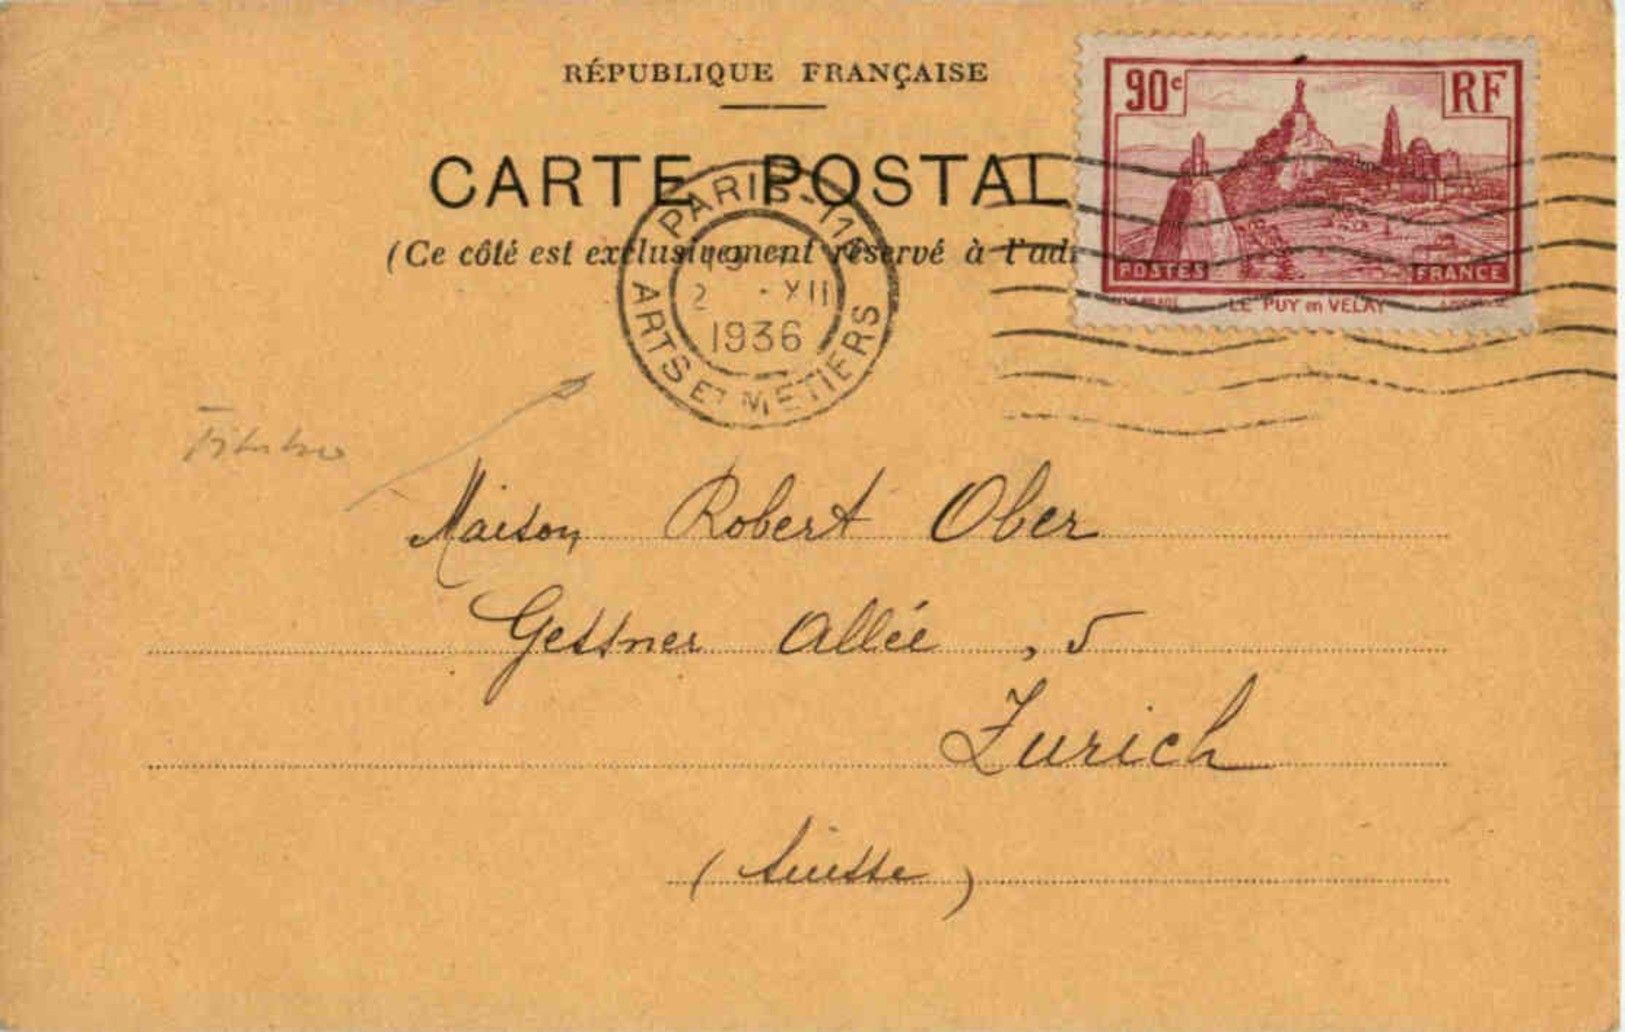 RÉPUBLIQUE FRANÇAISE
CARTE POSTAL
(Ce côté est exclusivement réservé à l'adr
90c RF
POSTES FRANCE
LE PUY en VELAY
PARIS - 11
2 · XII
1936
ARTS ET METIERS
Maison Robert Ober
Gessner Allée, 5
Zurich
(Suisse)